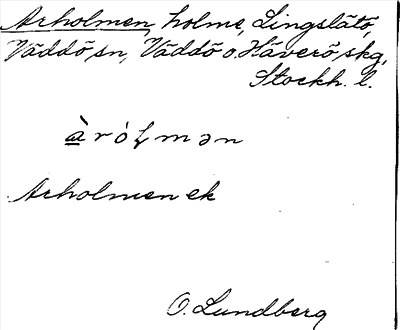 Arholmen, holme, Lingslätö,
Väddö sn, Väddö o. Häverö skg,
Stockh. l.
àrólmən
Arholmen ek
O. Lundberg